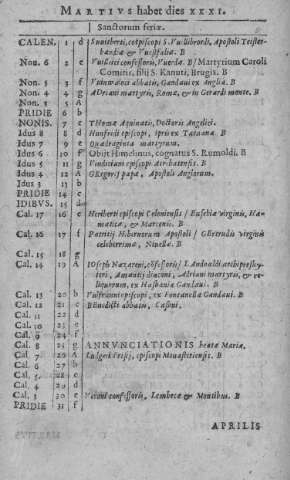 MARTIVS habet dies XXXI.
Sanctorum feriæ.
CALEN. 1 d Suuiberti, coëpiscopi S. Vuillibrordi, Apostoli Teister-
bandiæ & Vuestfaliæ. B
Non. 6 2 e confessoris, B / Martyrium Caroli
Comitis, filij S. Kanuti, Brugis. B
Non. 5 3 f abbatis, Gandaui ex Anglia. B
Non. 4 4 g Adriani martyris, Romæ, & in Gerardi monte. B
Non. 3 5 A
PRIDIE 6 b
NONIS. 7 c Thomæ Aquinatis, Doctoris Angelici.
Idus 8 8 d Hunfridi episcopi, B
Idus 7 9 e Quadraginta martyrum.
Idus 6 10 f Obijt Himelinus, cognatus S. Rumoldi. B
Idus 5 11 g Vindiciani episcopi Atrebatensis. B
Idus 4 12 A Gregorij papæ, Apostoli Anglorum.
Idus 3 13 b
PRIDIE 14 c
IDIBVS. 15 d
Cal. 17 16 e Heriberti episcopi Coloniensis / Eusebia virginis, Ha-
maticæ, & Marcenis. B
Cal. 16 17 f Patritij Hibernorum Apostoli / Gertrudis virginis
celeberrimæ, Niuellæ. B
Cal. 15 18 g
Cal. 14 19 A Ioseph Nazareni, confessoris / Landoaldi archipresby-
teri, Amantij diaconi, Adriani martyris, & re-
liquorum, ex Haspania Gandaui. B
Cal. 13 20 b Vulfranni episcopi, ex Fontanella Gandaui. B
Cal. 12 21 c Benedicti abbatis, Cassini.
Cal. 11 22 d
Cal. 10 23 e
Cal. 9 24 f
Cal. 8 25 g ANNVNCIATIONIS beatæ Mariæ.
Cal. 7 26 A Ludgeri Frisij, episcopi Monasteriensis. B
Cal. 6 27 b
Cal. 5 28 c
Cal. 4 29 d
Cal. 3 30 e confessoris, Lembecæ & Montibus. B
PRIDIE 31 f
APRILIS